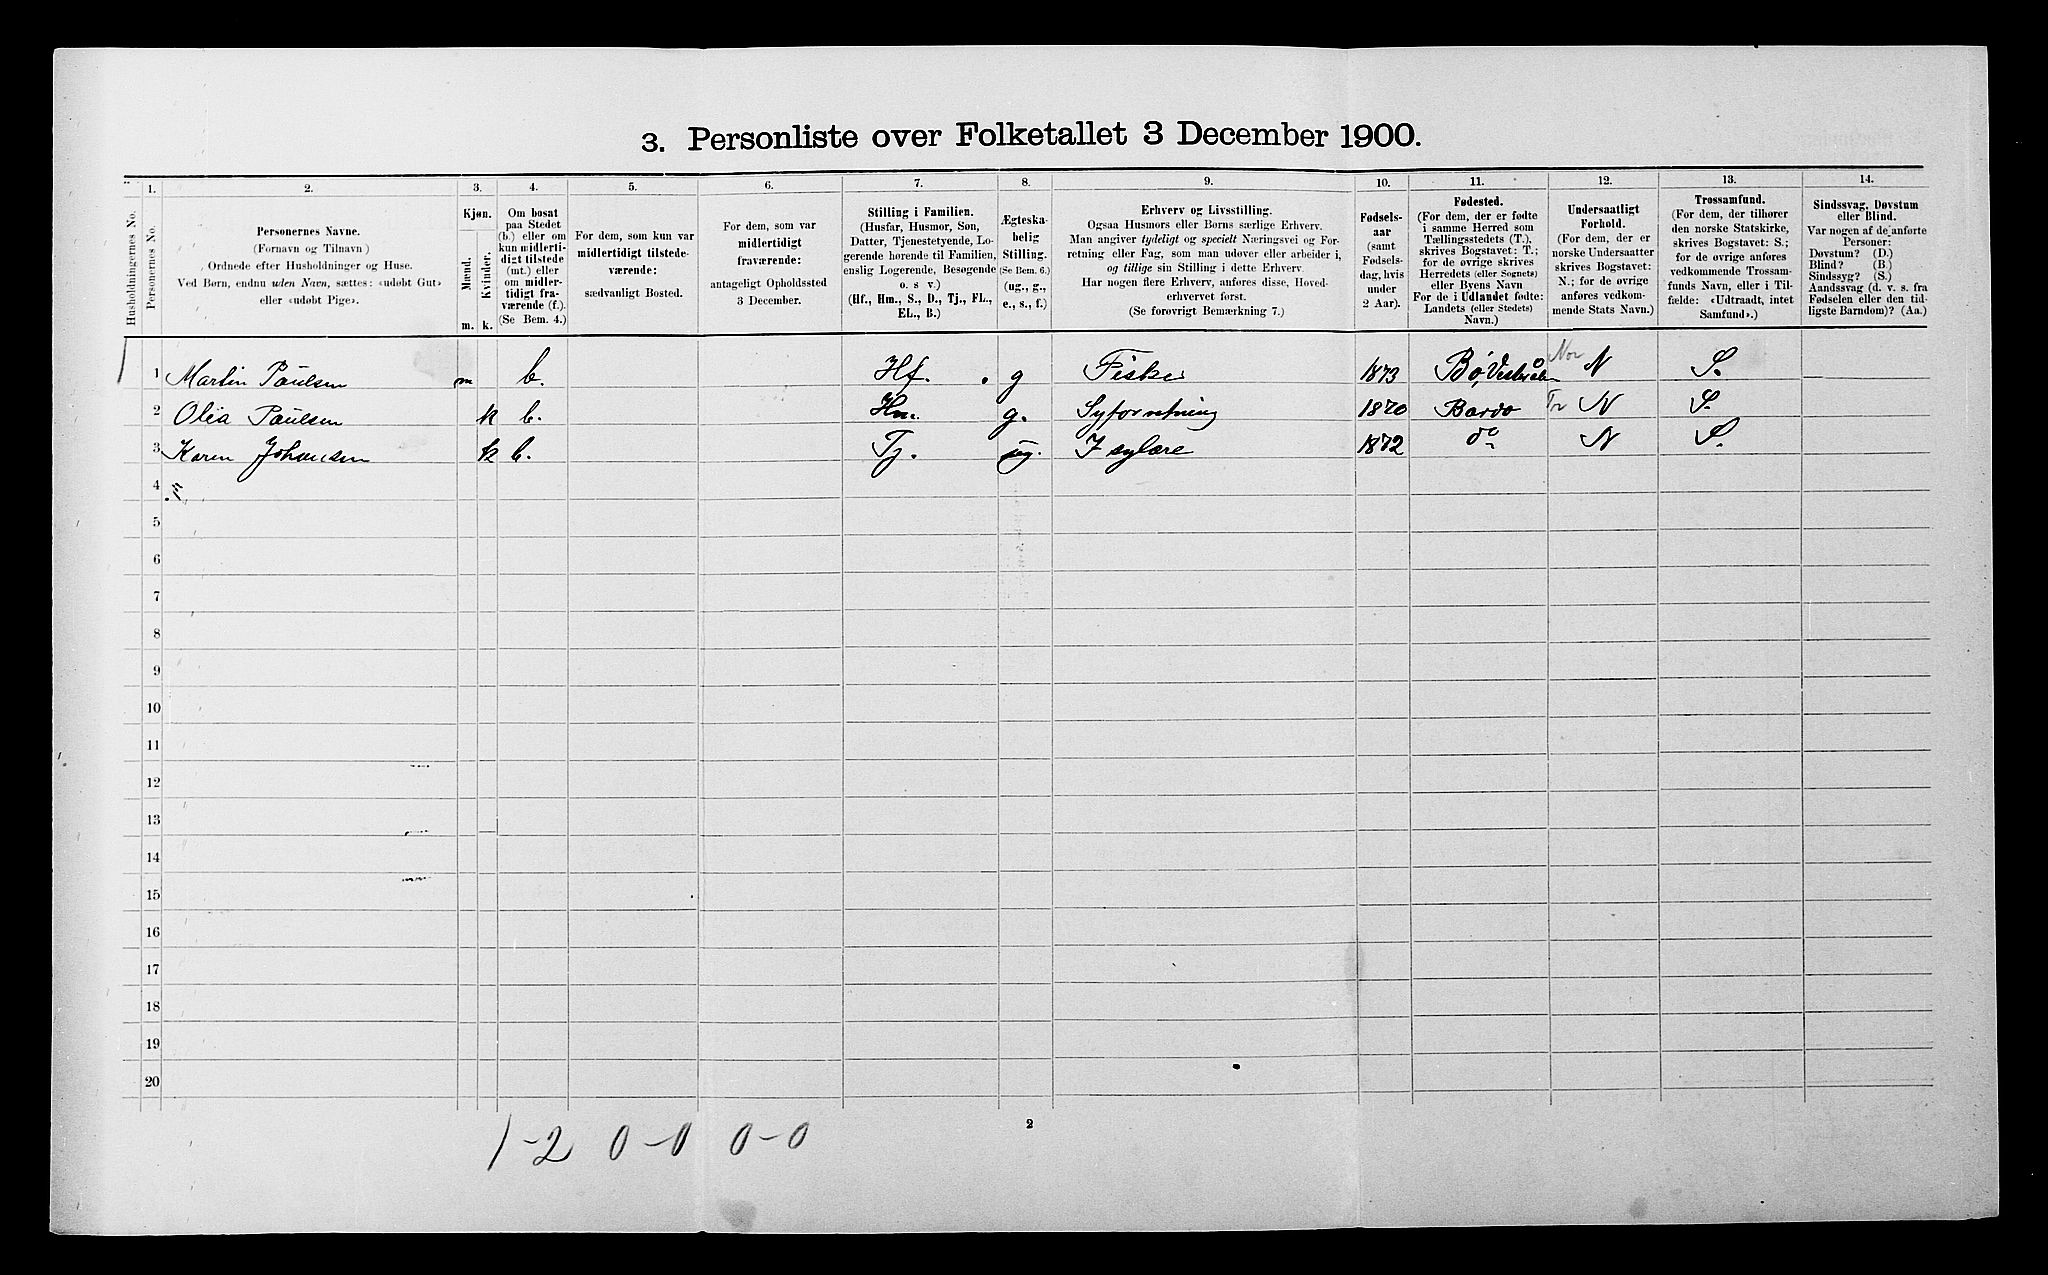 3. Personliste over Folketallet 3 December 1900.
Husholdningernes No.
1.
Personernes No.
2.
Personernes Navne.
(Fornavn og Tilnavn)
Ordnede efter Husholdninger og Huse.
Ved Børn, endnu uden Navn, sættes: «udøbt Gut»
eller «udøbt Pige».
3.
Kjøn.
Mænd.
Kvinder.
m. k.
4.
Om bosat
paa Stedet
(b.) eller om
kun midlerti-
digt tilstede
(mt.) eller
om midler-
tidigt fra-
værende (f.).
(Se Bem. 4.)
5.
For dem, som kun var
midlertidigt tilstede-
værende:
sædvanligt Bosted.
6.
For dem, som var
midlertidigt
fraværende:
antageligt Opholdssted
3 December.
7.
Stilling i Familien.
(Husfar, Husmor, Søn,
Datter, Tjenestetyende, Lo-
gerende hørende til Familien,
enslig Logerende, Besøgende
o. s. v.)
(Hf., Hm., S., D., Tj., FL.,
EL., B.)
8.
Ægteska-
belig
Stilling.
(Se Bem. 6.)
(ug., g.,
e., s., f.)
9.
Erhverv og Livsstilling.
Ogsaa Husmors eller Børns særlige Erhverv.
Man angiver tydeligt og specielt Næringsvei og For-
retning eller Fag, som man udøver eller arbeider i,
og tillige sin Stilling i dette Erhverv.
Har nogen flere Erhverv, anføres disse, Hoved-
erhvervet først.
(Se forøvrigt Bemærkning 7.)
10.
Fødsels-
aar
(samt
Fødsels-
dag, hvis
under
2 Aar).
11.
Fødested.
(For dem, der er fødte
i samme Herred som
Tællingsstedets (T.),
skrives Bogstavet: T.;
for de øvrige skrives
Herredets (eller Sognets)
eller Byens Navn
For de i Udlandet fødte:
Landets (eller Stedets)
Navn.)
12.
Undersaatligt
Forhold.
(For dem, der er
norske Undersaatter
skrives Bogstavet:
N.; for de øvrige
anføres vedkom-
mende Stats Navn.)
13.
Trossamfund.
(For dem, der tilhører
den norske Statskirke,
skrives Bogstavet: S.;
for de øvrige anføres
vedkommende Trossam-
funds Navn, eller i Til-
fælde: «Udtraadt, intet
Samfund».)
14.
Sindssvag, Døvstum
eller Blind.
Var nogen af de anførte
Personer:
Døvstum? (D.)
Blind? (B.)
Sindssyg? (S.)
Aandssvag (d. v. s. fra
Fødselen eller den tid-
ligste Barndom)? (Aa.)
1 1 Martin Paulsen m b. Hf. g Fisker 1873 Bø, Vesteraalen Nor N S.
2 Olea Paulsen k b. Hm. g. Syforretning 1870 Bardo Tr N S.
3 Karen Johansen k b. Tj. ug. I sylære 1872 do N S.
4
5
6
7
8
9
10
11
12
13
14
15
16
17
18
19
20
2
1-2 0-0 0-0